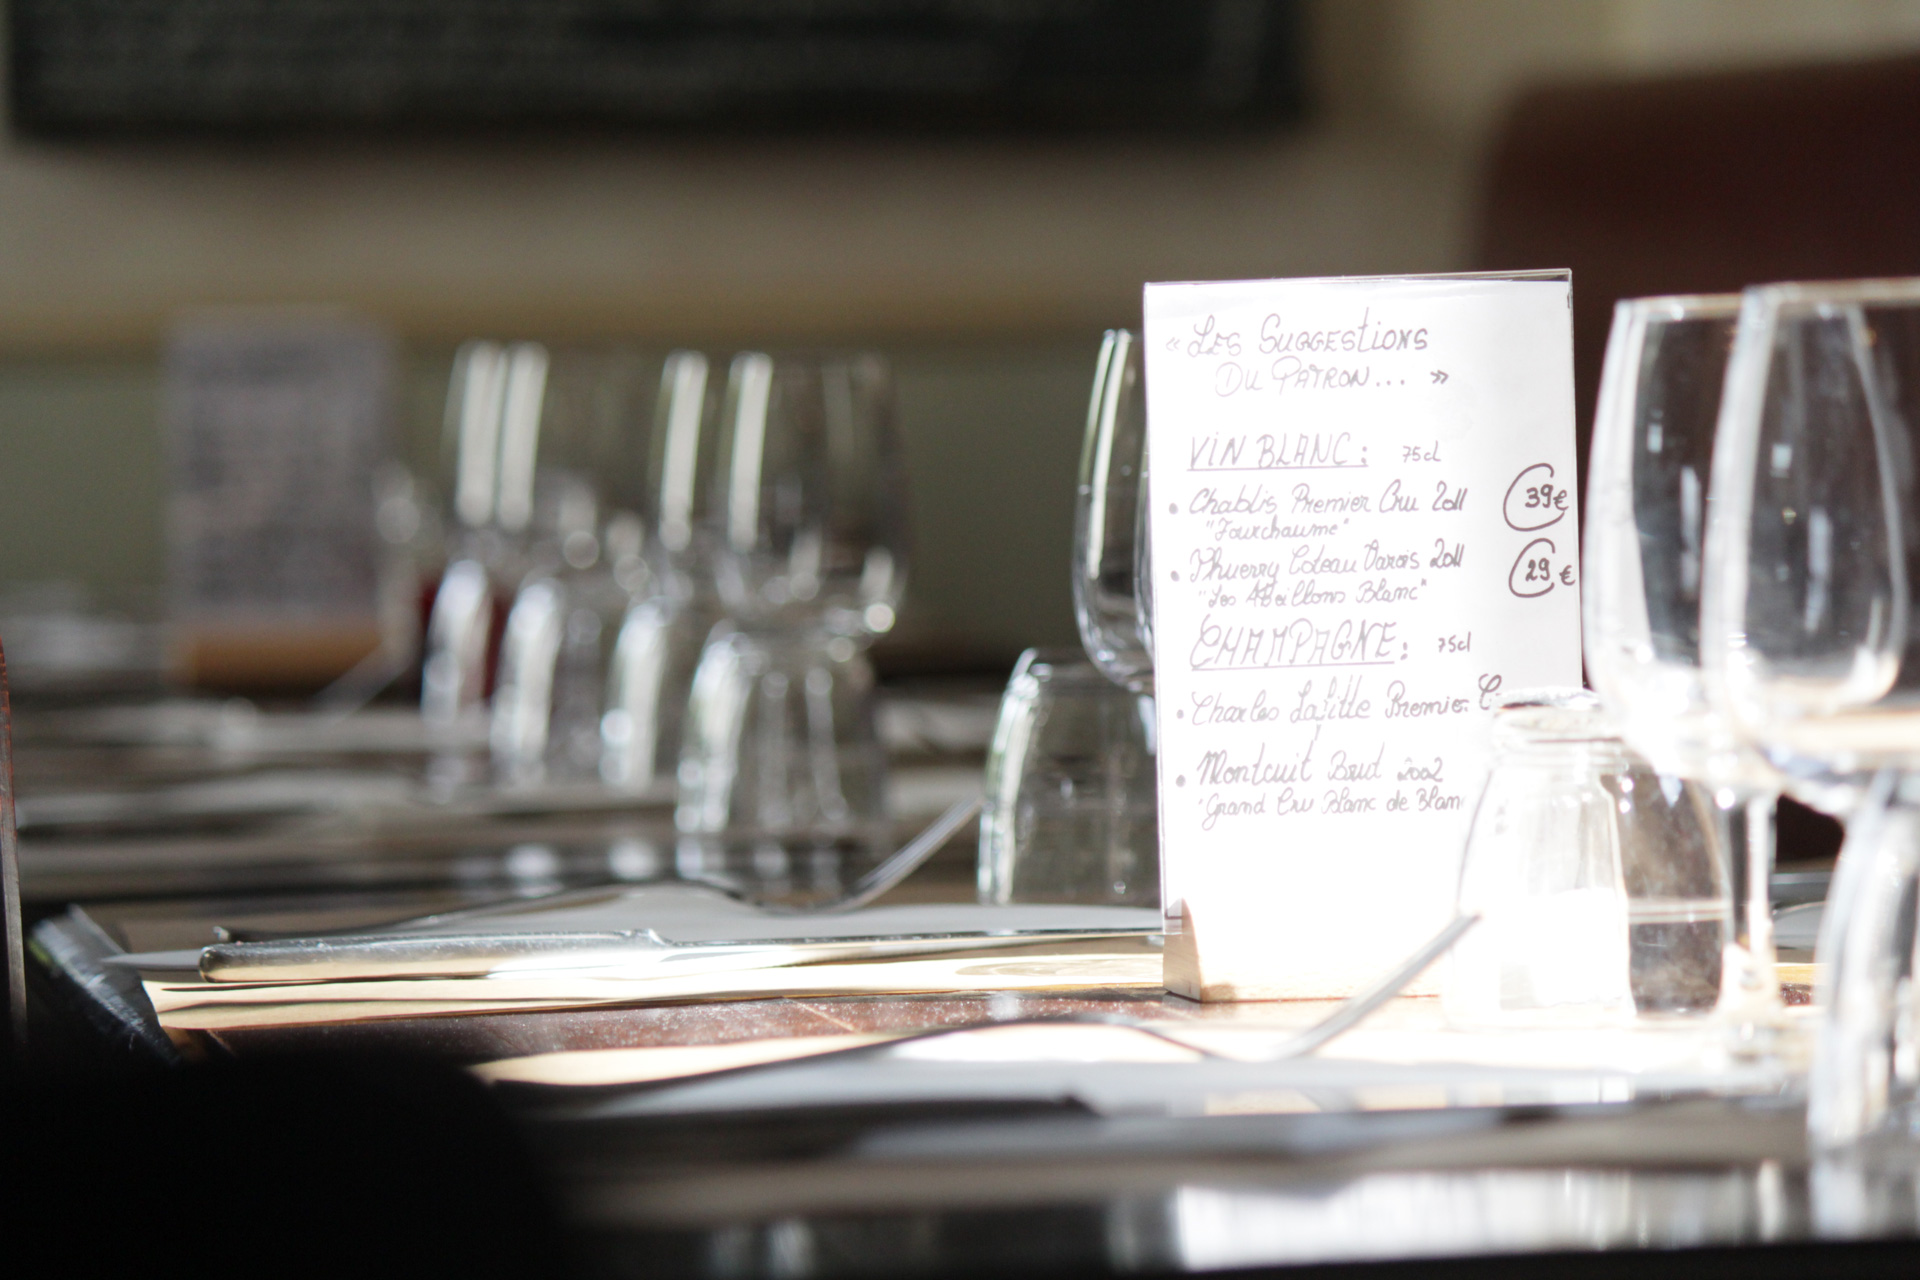 « Les Suggestions
Du Patron... »
Vin Blanc : 75cl
• Chablis Premier Cru 2011 39€
"Fourchaume"
• Thierry Coteau Varois 2011 29€
"Les Abeillons Blanc"
Champagne : 75cl
• Charles Lafitte Premier
• Montcuit Brut 2002
"Grand Cru Blanc de Blanc